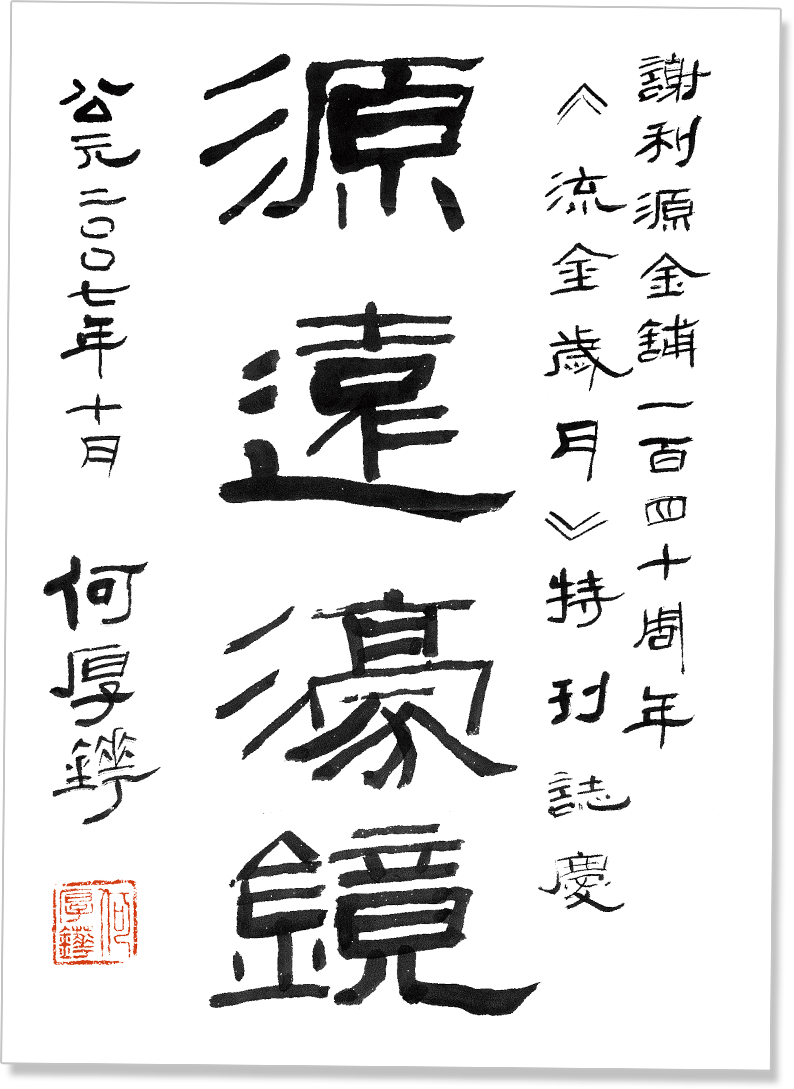 謝利源金舖一百四十周年
《流金歲月》特刊誌慶
源遠濠鏡
公元二〇〇七年十月
何厚鏵
何厚鏵